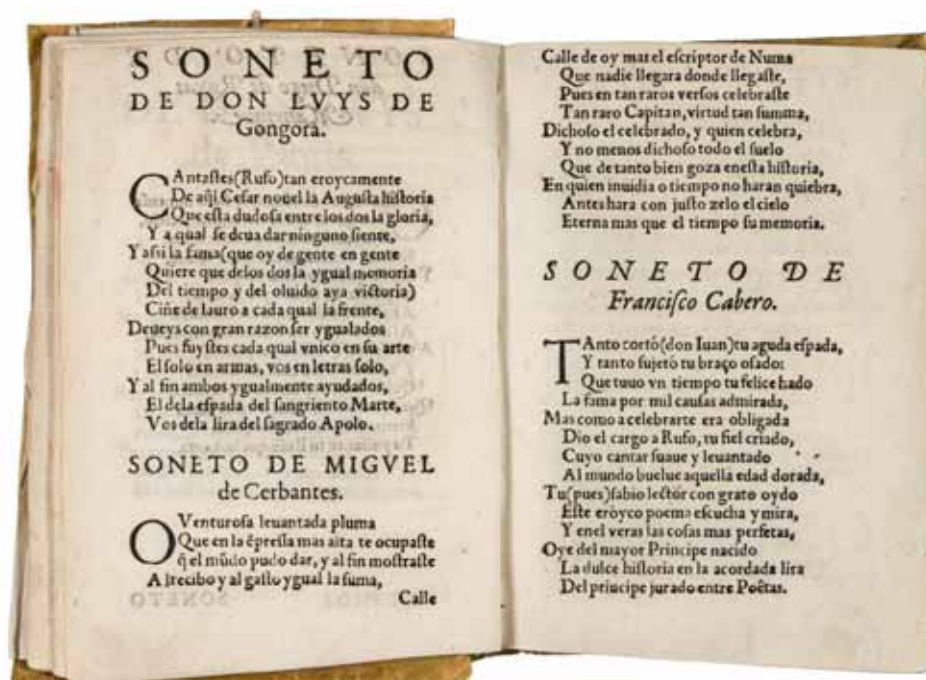 SONETO
DE DON LVYS DE
Gongora.
CAntastes(Rufo)tan eroycamente
De aq̃l Cesar nouel la Augusta historia
Que esta dudosa entre los dos la gloria,
Y a qual se deua dar ninguno siente,
Y assi la fama(que oy de gente en gente
Quiere que delos dos la ygual memoria
Del tiempo y del oluido aya victoria)
Ciñe de lauro a cada qual la frente,
Deueys con gran razon ser ygualados
Pues fuystes cada qual vnico en su arte
El solo en armas, vos en letras solo,
Y al fin ambos ygualmente ayudados,
El dela espada del sangriento Marte,
Vos dela lira del sagrado Apolo.
SONETO DE MIGVEL
de Cerbantes.
O Venturosa leuantada pluma
Que en la ẽpressa mas alta te ocupaste
q̃ el mũdo pudo dar, y al fin mostraste
Al recibo y al gasto ygual la suma,
Calle
Calle de oy mas el escriptor de Numa
Que nadie llegara donde llegaste,
Pues en tan raros versos celebraste
Tan raro Capitan, virtud tan summa,
Dichoso el celebrado, y quien celebra,
Y no menos dichoso todo el suelo
Que de tanto bien goza enesta historia,
En quien inuidia o tiempo no haran quiebra,
Antes hara con justo zelo el cielo
Eterna mas que el tiempo su memoria.
SONETO DE
Francisco Cabero.
TAnto cortò(don Iuan)tu aguda espada,
Y tanto sujetò tu braço osado:
Que tuuo vn tiempo tu felice hado
La fama por mil causas admirada,
Mas como a celebrarte era obligada
Dio el cargo a Rufo, tu fiel criado,
Cuyo cantar suaue y leuantado
Al mundo buelue aquella edad dorada,
Tu(pues)sabio lector con grato oydo
Este eroyco poema escucha y mira,
Y enel veras las cosas mas perfetas,
Oye del mayor Principe nacido
La dulce historia en la acordada lira
Del principe jurado entre Poëtas.